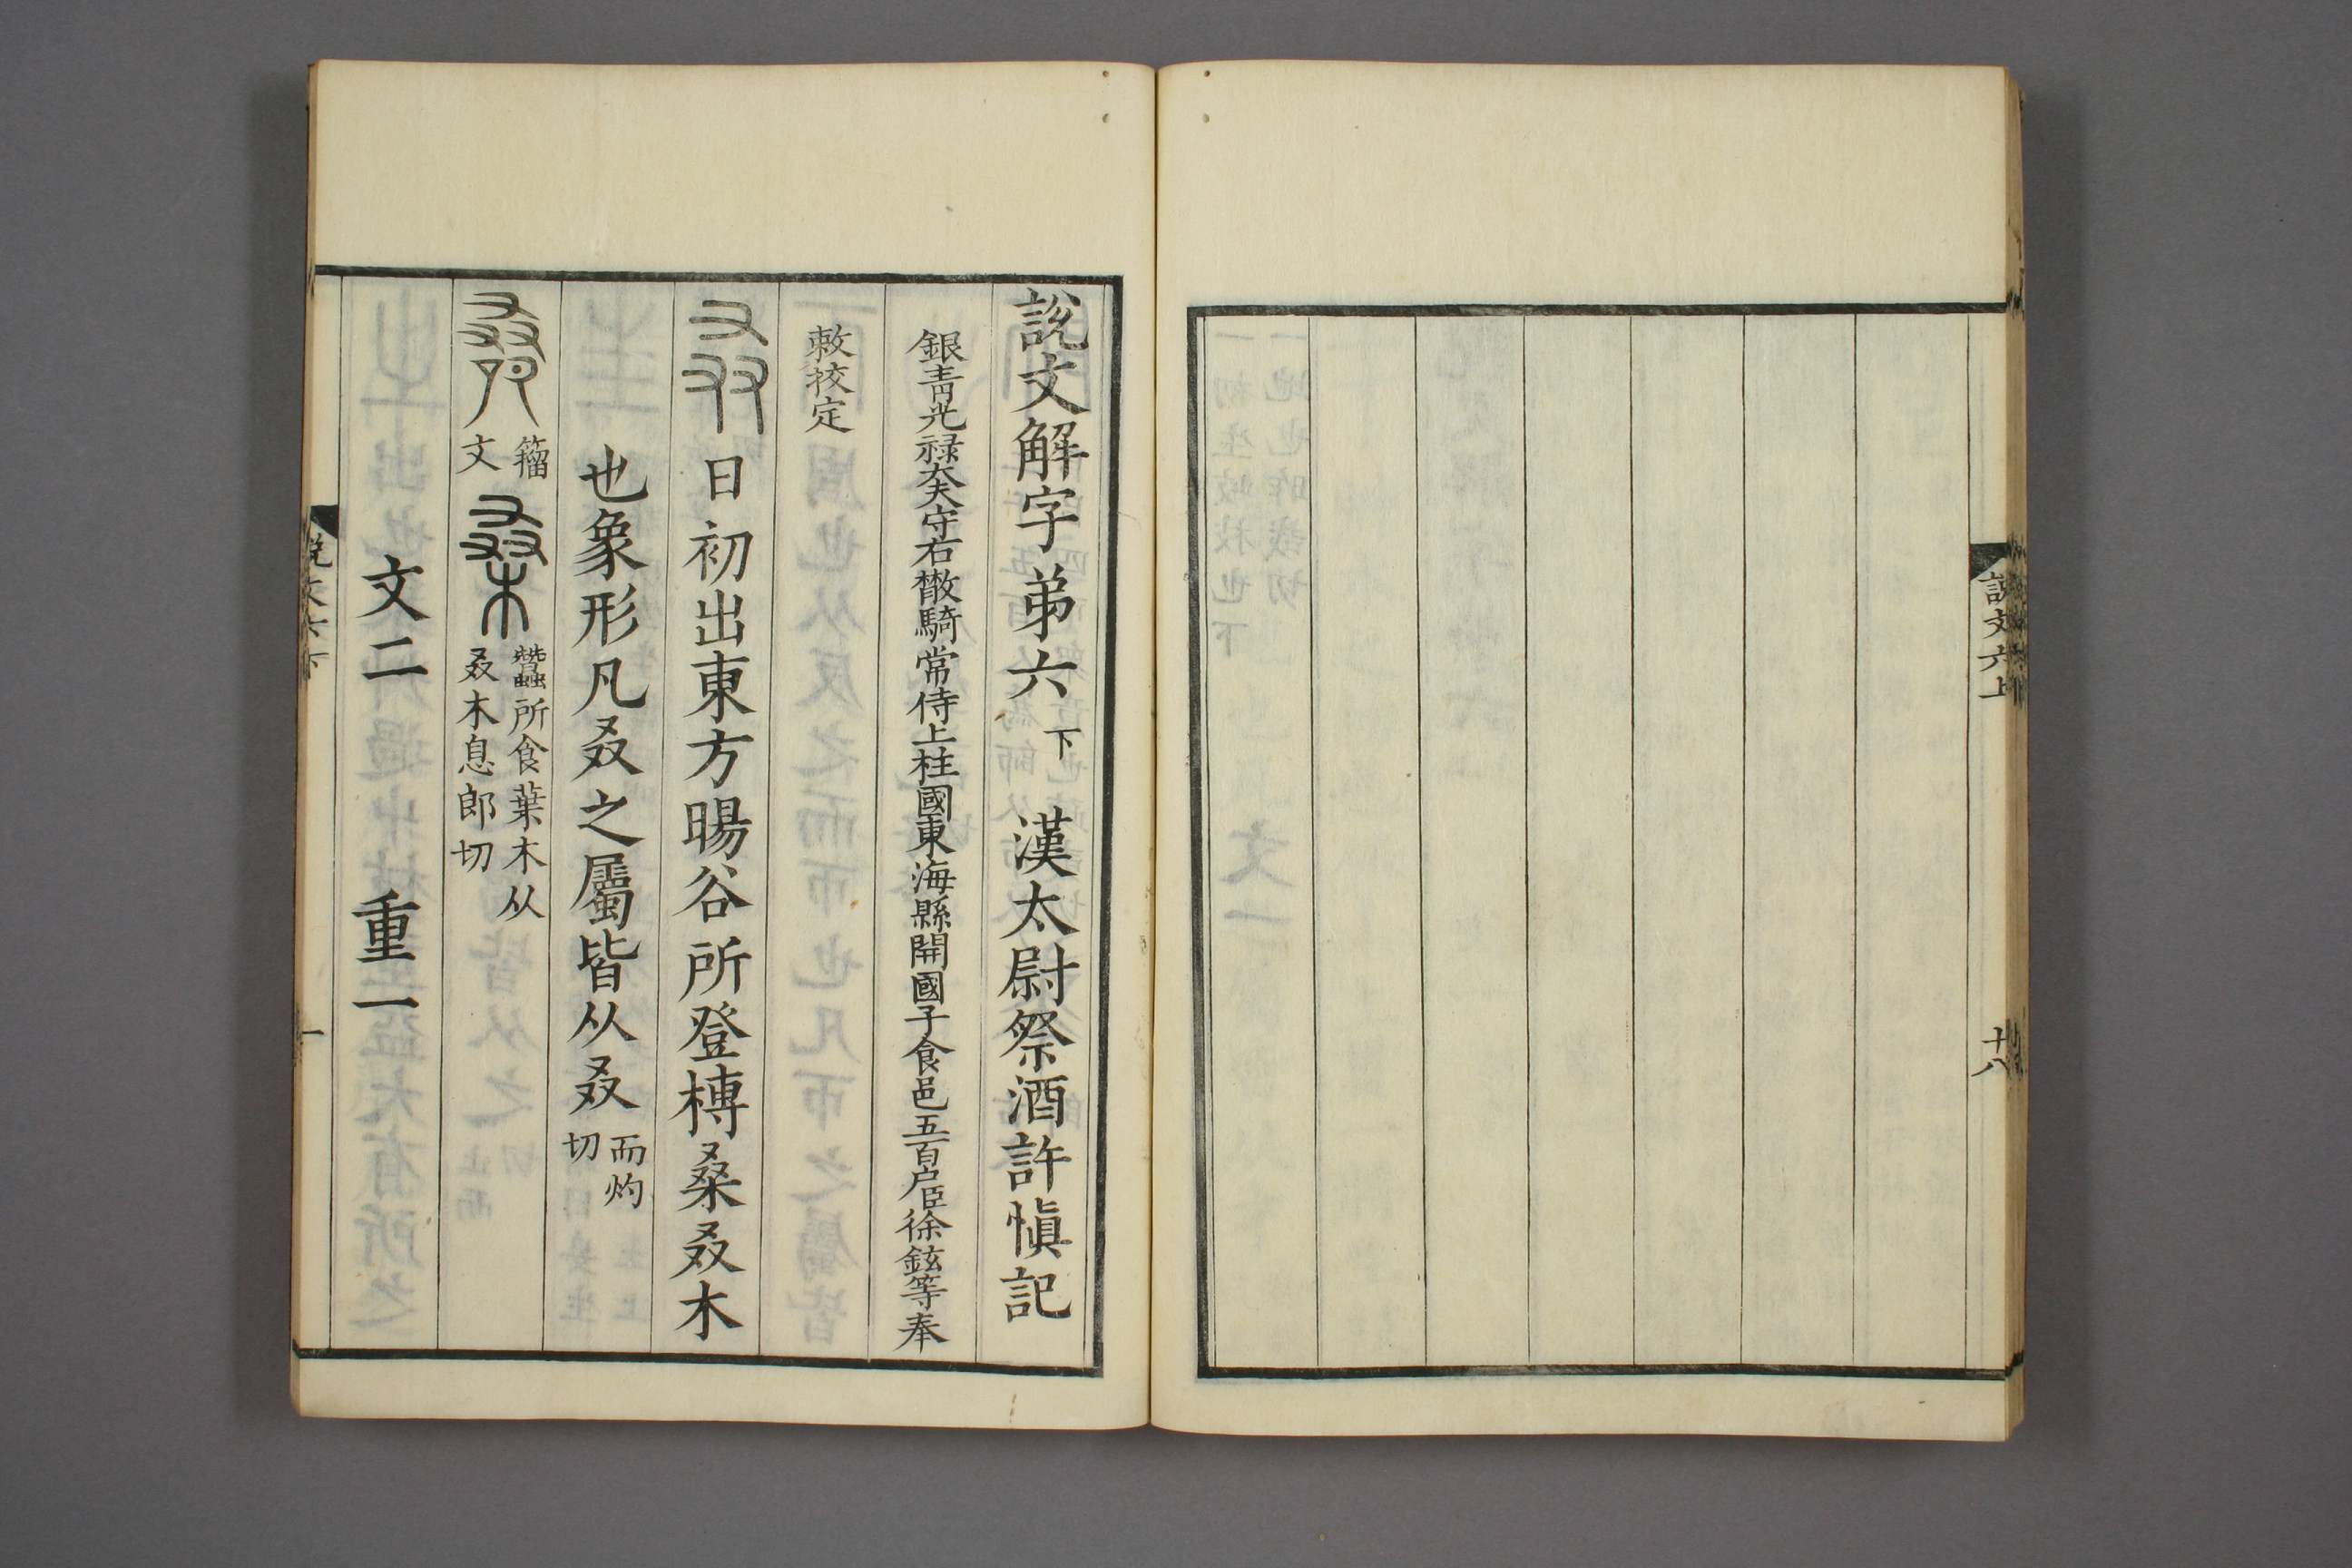 說文六上
十八
說文解字弟六下 漢太尉祭酒許愼記
銀青光禄大夫守右散騎常侍上柱國東海縣開國子食邑五百户臣徐鉉等奉
敕校定
叒 日初出東方暘谷所登榑桑叒木
也象形凡叒之屬皆从叒而灼切
籒文 桑 蠶所食葉木从叒木息郎切
文二 重一
說文六下
一